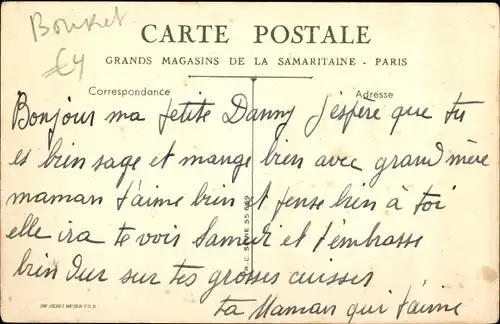 Bonket
£4
CARTE POSTALE
GRANDS MAGASINS DE LA SAMARITAINE - PARIS
Correspondance
Adresse
Bonjour ma petite Danny j'espère que tu
es bien sage et mange bien avec grand mère
maman t'aime bien et pense bien à toi
elle ira te voir Samedi et t'embrasse
bien dur sur tes grosses cuisses
ta Maman qui t'aime
R.C. SEINE 55.649
IMP. HENRI MEYER FILS